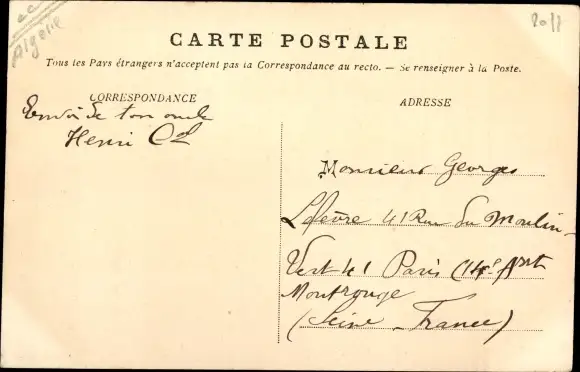 Algérie
2011
CARTE POSTALE
Tous les Pays étrangers n'acceptent pas la Correspondance au recto. — Se renseigner à la Poste.
CORRESPONDANCE
ADRESSE
Envoi de ton oncle
Henri
Monsieur Georges
Lefèvre 41 Rue du Moulin-
Vert 41 Paris (14e Arrt
Montrouge
(Seine - France)